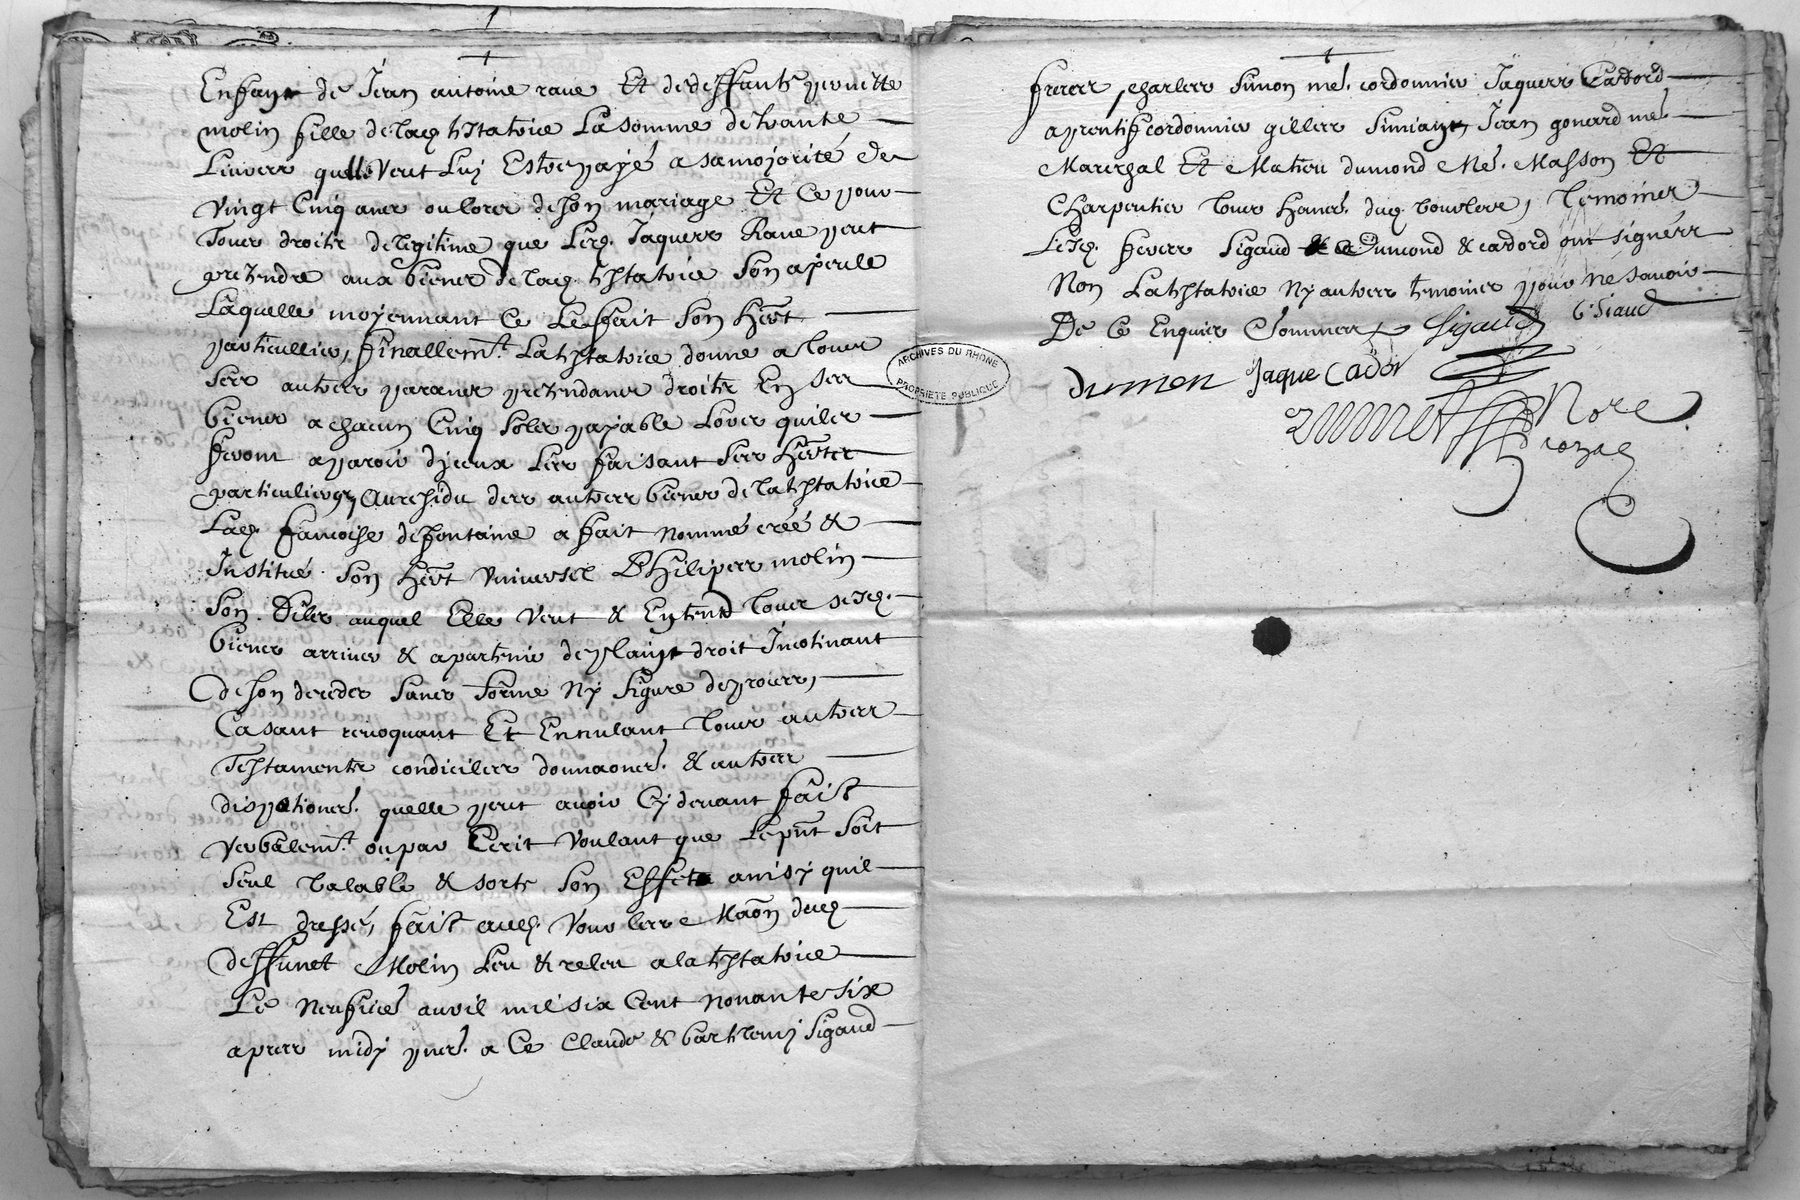 Enfant de Jean antoine raue Et de deffunte pernette
molin fille de lad. testatrice La somme de trante
Liures quelle Veut Luy Estre payé a sa majorité de
Vingt Cinq ans ou lors de son mariage Et Ce pour
Tous droits de legitime que Led. Jaques Raue peut
pretendre aux biens de lad. testatrice Son ayeule
Laquelle moyennant Ce Le ffait Son Hert
particullier, finallemt. La testatrice donne a tous
Ses autres parans pretendans droits En Ses
biens a chacun Cinq Sols payable Lors quils
feront aparoir d'jceux Les faisant Ses Herters
particuliers, Au residu des autres biens de la testatrice
Lad. francoise defontaine a fait nommé créé &
Institué Son Hert Vniuersel Philipes molin
Son fils auquel Elle Veut & Entend tous sesd.
biens arriuer & apartenir de plain droit Incotinant
de son deceder Sans forme Ny figure de proces,
Casant reuoquant Et Ennulant tous autres
Testaments condiciles donnaons. & autres
dispotions. quelle peut auoir Cy deuant faist
verbalemt. ou par Ecrit Voulant que Le pnt Soit
Seul Valable & sorte Son Effet ainsy quil
Est dressé, faist aud. Vourles Maon dud
deffunct Molin Leu & releu a la testatrice
Le Neufuie auril mil six Cent nonante six
apres midy pns. a Ce Claude & bartlemy Sigaud
freres, charles Simon me. cordonnier Jaques Cardord
aprentif cordonnier gilles Simiant, Jean gonerd me.
Marechal Et Matieu dumond Me. Masson Et
Charpentier tous Hans. dud. Vourlere, temoins
Lesd. freres Sigaud & Dumond & cardord ont signés
Non La testatrice Ny autres temoins pour ne Sauoir
De Ce Enquis & Sommes Sigaud C. Siaud
dumon Jaque Cador
Nore
royal
ARCHIVES DU RHONE
PROPRIETE PUBLIQUE